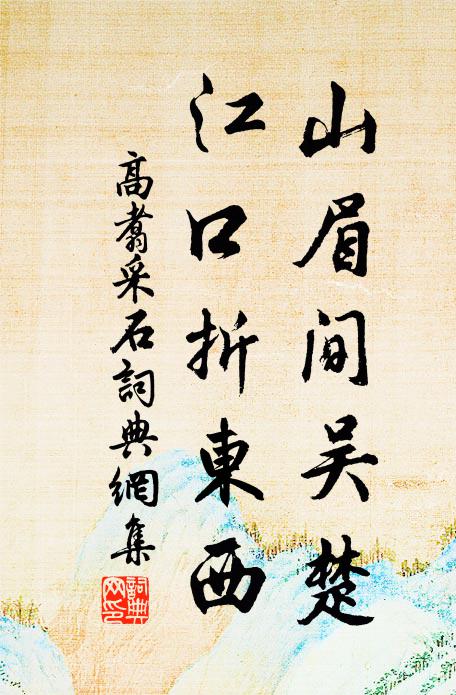 山眉间吴楚
江口折東西
高翥采石詞典網集
詞典网印